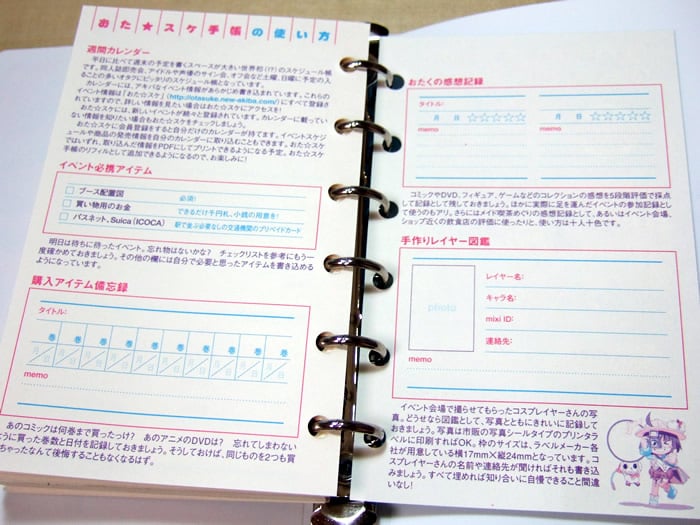 おた★スケ手帳の使い方
週間カレンダー
平日に比べて週末の予定を書くスペースが大きい世界初(!?)のスケジュール帳
です。同人誌即売会、アイドルや声優のサイン会、オフ会など土曜、日曜に予定の入
ることの多いオタクにピッタリのスケジュール帳となっています。
カレンダーには、アキバなイベント情報があらかじめ書き込まれています。これらの
イベント情報は「おた☆スケ」(http://otasuke.new-akiba.com/)にすべて登録さ
れていますので、詳しい情報を見たい場合はおた☆スケにアクセスを!
おた☆スケには、新しいイベントが続々と登録されています。カレンダーに載ってい
ない情報を知りたい場合もおた☆スケをチェックしましょう。
おた☆スケに会員登録をすると自分だけのカレンダーが持てます。イベントスケジ
ュールや商品の発売情報を自分のカレンダーに取り込むこともできます。おた☆スケ
ではいずれ、取り込んだ情報をPDFにしてプリントできるようになる予定。おた☆スケ
手帳のリフィルとして追加できるようになるので、お楽しみに!
イベント必携アイテム
ブース配置図 必須!
買い物用のお金 できるだけ千円札、小銭の用意を!
パスネット、Suica(ICOCA) 駅で並ぶ必要なしの交通機関のプリペイドカード
明日は待ちに待ったイベント。忘れ物はないかな? チェックリストを参考にもう一
度確かめておきましょう。その他の欄には自分で必要と思ったアイテムを書き込める
ようになっています。
購入アイテム備忘録
タイトル:
巻 巻 巻 巻 巻 巻 巻 巻
月 日 月 日 月 日 月 日 月 日 月 日 月 日 月 日
memo
あのコミックは何巻まで買ったっけ? あのアニメのDVDは? 忘れてしまわない
ように買った巻数と日付を記録しておきましょう。そうしておけば、同じものを2つも買
っちゃったなんて後悔することもなくなるはず。
おたくの感想記録
タイトル:
月 日 ☆☆☆☆☆ 月 日 ☆☆☆☆☆
memo memo
コミックやDVD、フィギュア、ゲームなどのコレクションの感想を5段階評価で採点
して記録として残しておきましょう。ほかに実際に足を運んだイベントの参加記録とし
て使うのもアリ。さらにはメイド喫茶めぐりの感想記録として、あるいはイベント会場、
ショップ近くの飲食店の評価に使ったりと、使い方は十人十色です。
手作りレイヤー図鑑
photo
レイヤー名:
キャラ名:
mixi ID:
連絡先:
memo
イベント会場で撮らせてもらったコスプレイヤーさんの写
真。どうせなら図鑑として、写真とともにきれいに記録して
おきましょう。写真は市販の写真シールタイプのプリンタラ
ベルに印刷すればOK。枠のサイズは、ラベルメーカー各
社が用意している横17mm×縦24mmとなっています。コ
スプレイヤーさんの名前や連絡先が聞ければそれも書き込
みましょう。すべて埋めれば知り合いに自慢できること間違
いなし!